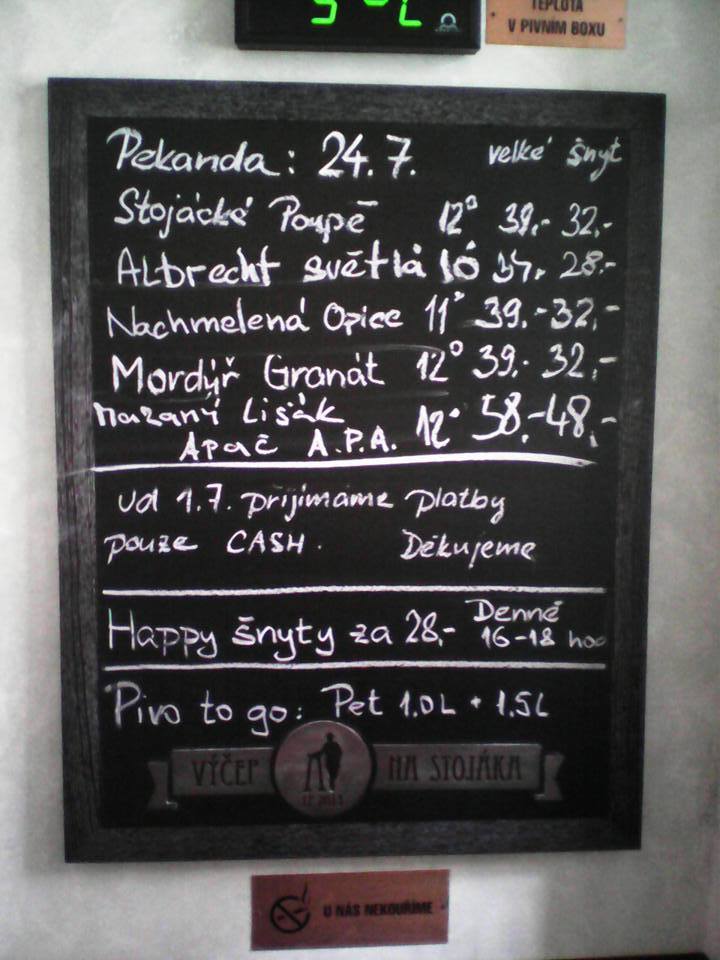 TEPLOTA
V PIVNÍM BOXU
Pekanda: 24.7. velké šnyt
Stojácké Poupě 12° 39,- 32,-
Albrecht světlá 10 37,- 28,-
Nachmelená Opice 11° 39,- 32,-
Mordýř Granát 12° 39,- 32,-
Mazaný Lišák
Apač A.P.A. 12° 58,- 48,-
Od 1.7. přijímame platby
pouze CASH. Děkujeme
Happy šnyty za 28,- Denně
16-18 hod
Pivo to go: Pet 1.0L + 1.5L
VÝČEP NA STOJÁKA
U NÁS NEKOUŘÍME